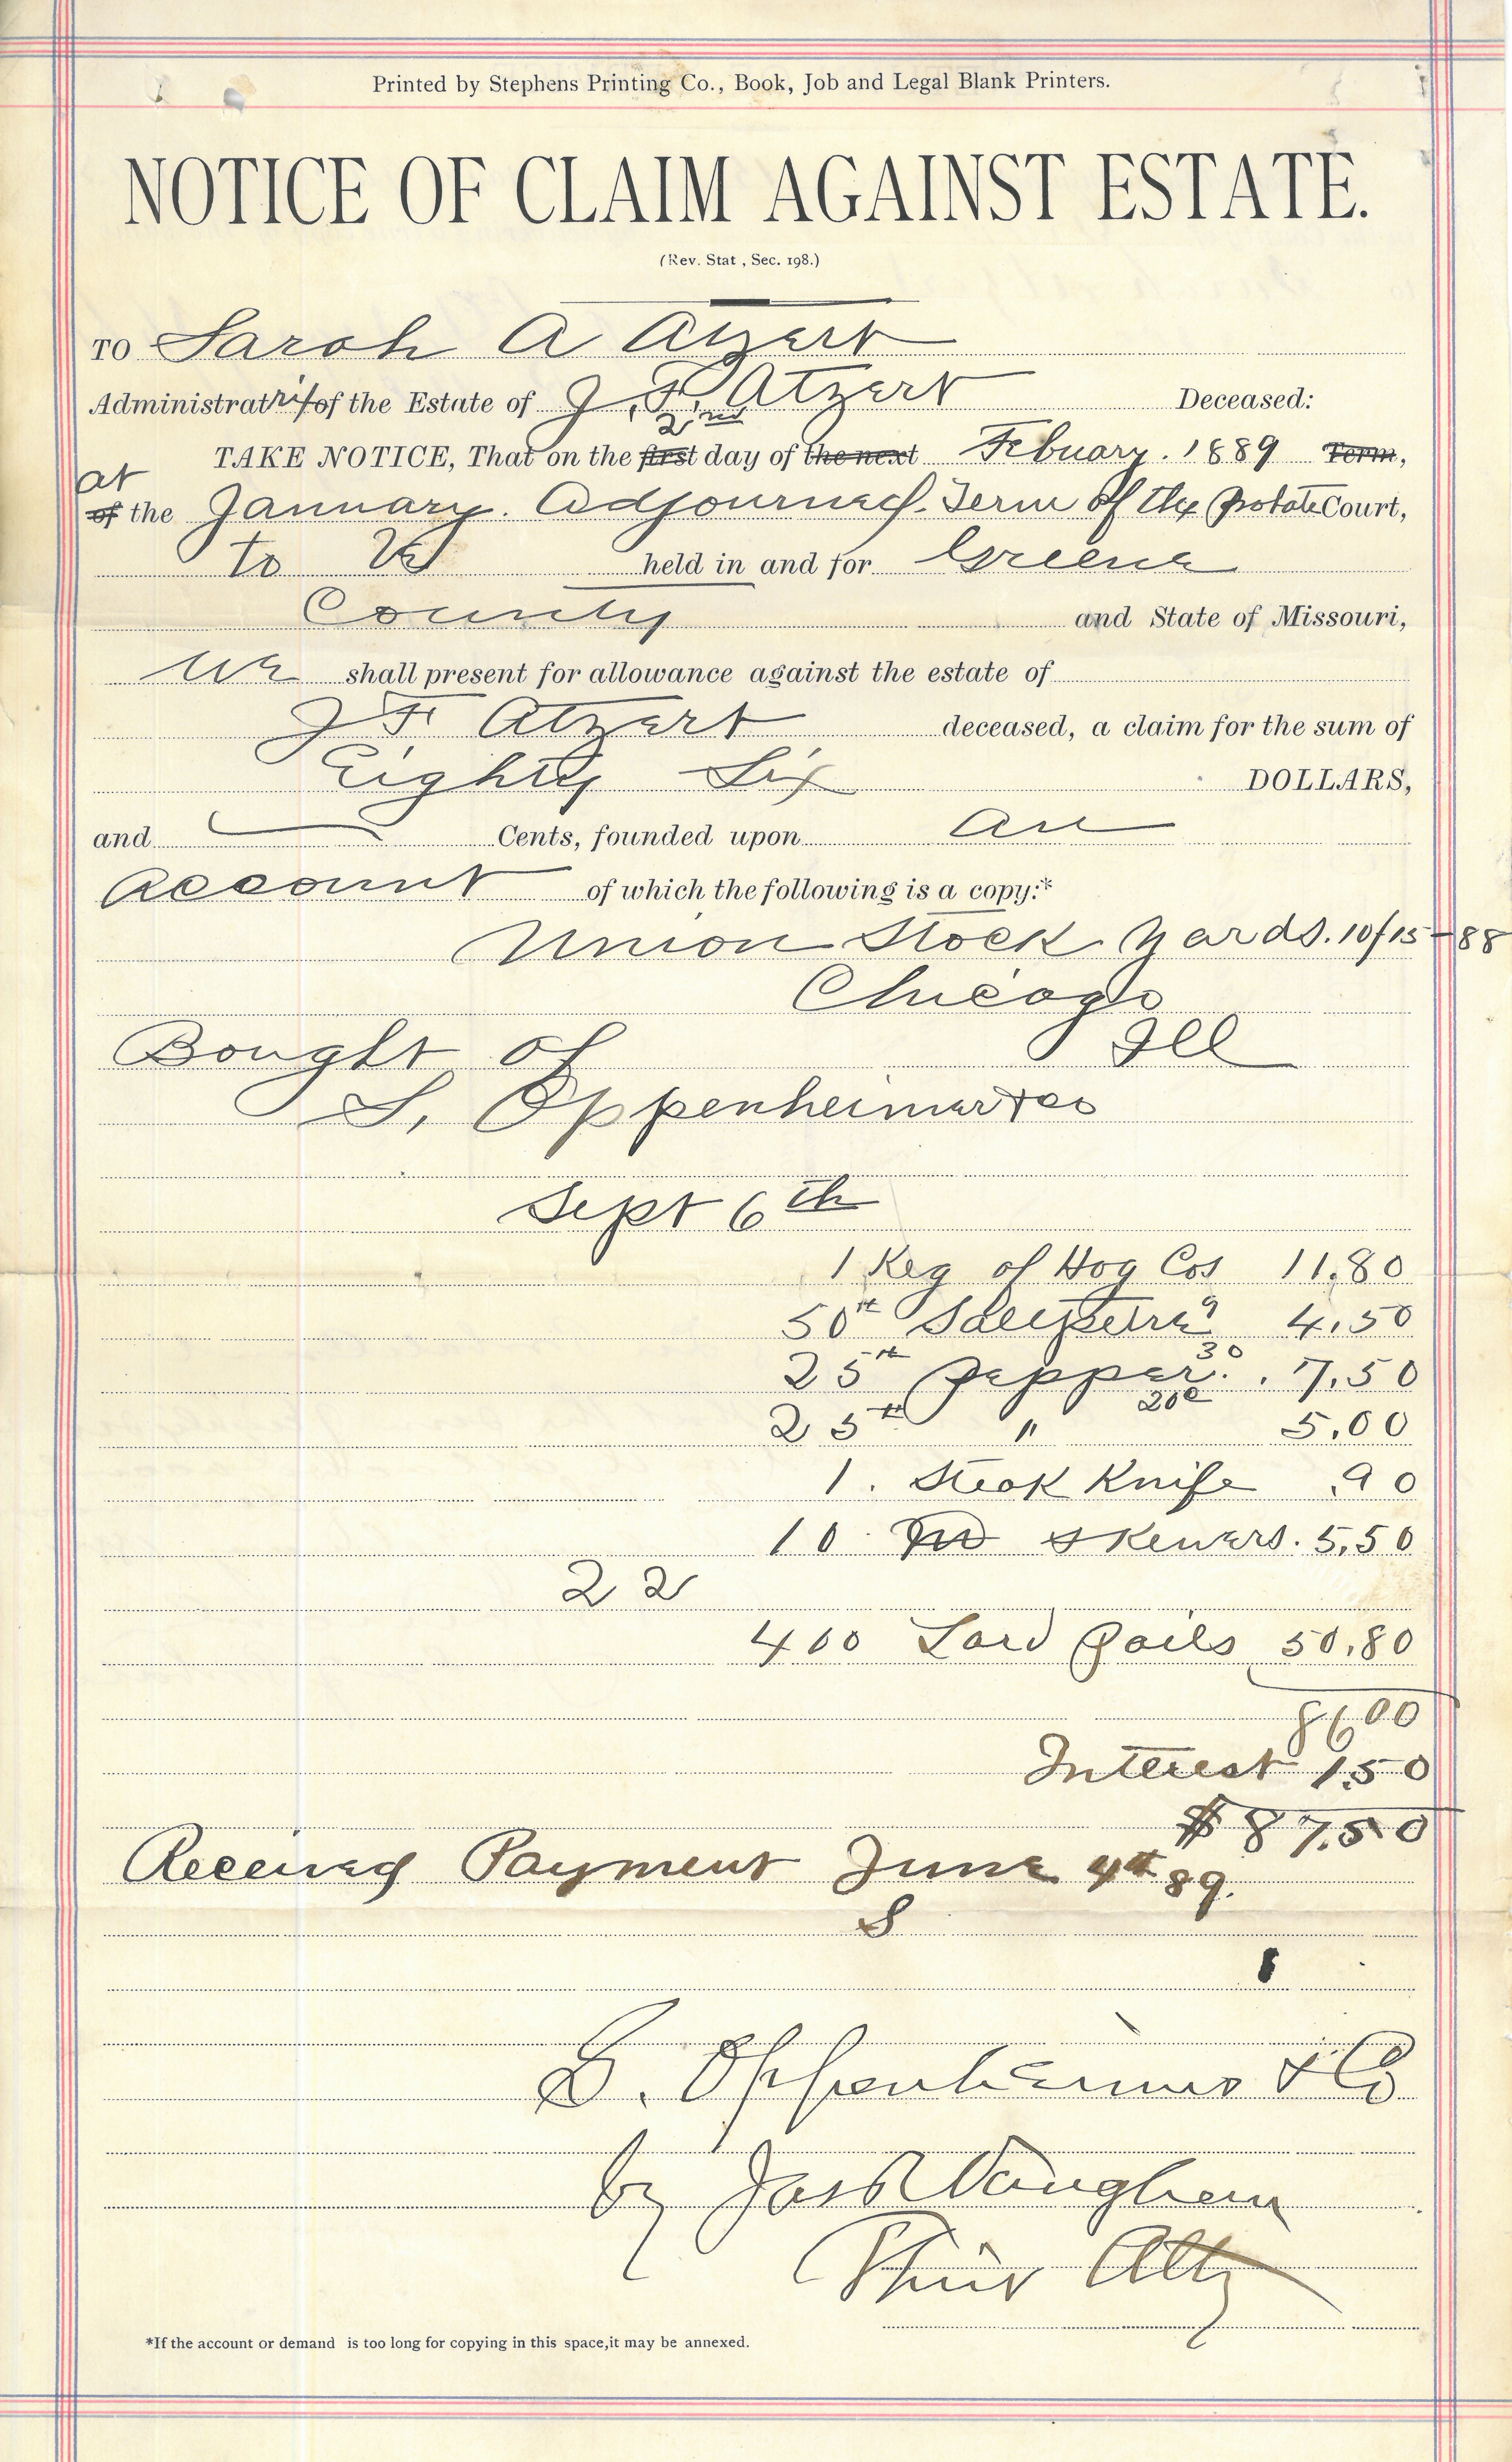 Printed by Stephens Printing Co., Book, Job and Legal Blank Printers.
NOTICE OF CLAIM AGAINST ESTATE.
(Rev. Stat , Sec. 198.)
TO Sarah A Atzert
Administratrix of the Estate of J. F. Atzert Deceased:
2nd
TAKE NOTICE, That on the first day of the next Febuary. 1889 Term,
at
of the January. Adjourned. Term of the Probate Court,
to be held in and for Greene
County and State of Missouri,
We shall present for allowance against the estate of
J F Atzert deceased, a claim for the sum of
Eighty Six DOLLARS,
and Cents, founded upon an
Account of which the following is a copy:*
Union Stock Yards. 10/15-88
Chicago
Bought of Ill
S. Oppenheimer & Co
Sept 6th
1 Keg of Hog Cas 11.80
50# Saltpetre 9 4.50
25# Pepper. 30 . 7.50
25# " 20c 5.00
1. Steak Knife .90
10 skewers. 5.50
22
400 Lard Pails 50.80
8600
Interest 1.50
$ 87.50
Received Payment June 4th 89.
S
S. Oppenheimer & Co
by Jas R Vaughan
Their Atty
*If the account or demand is too long for copying in this space,it may be annexed.